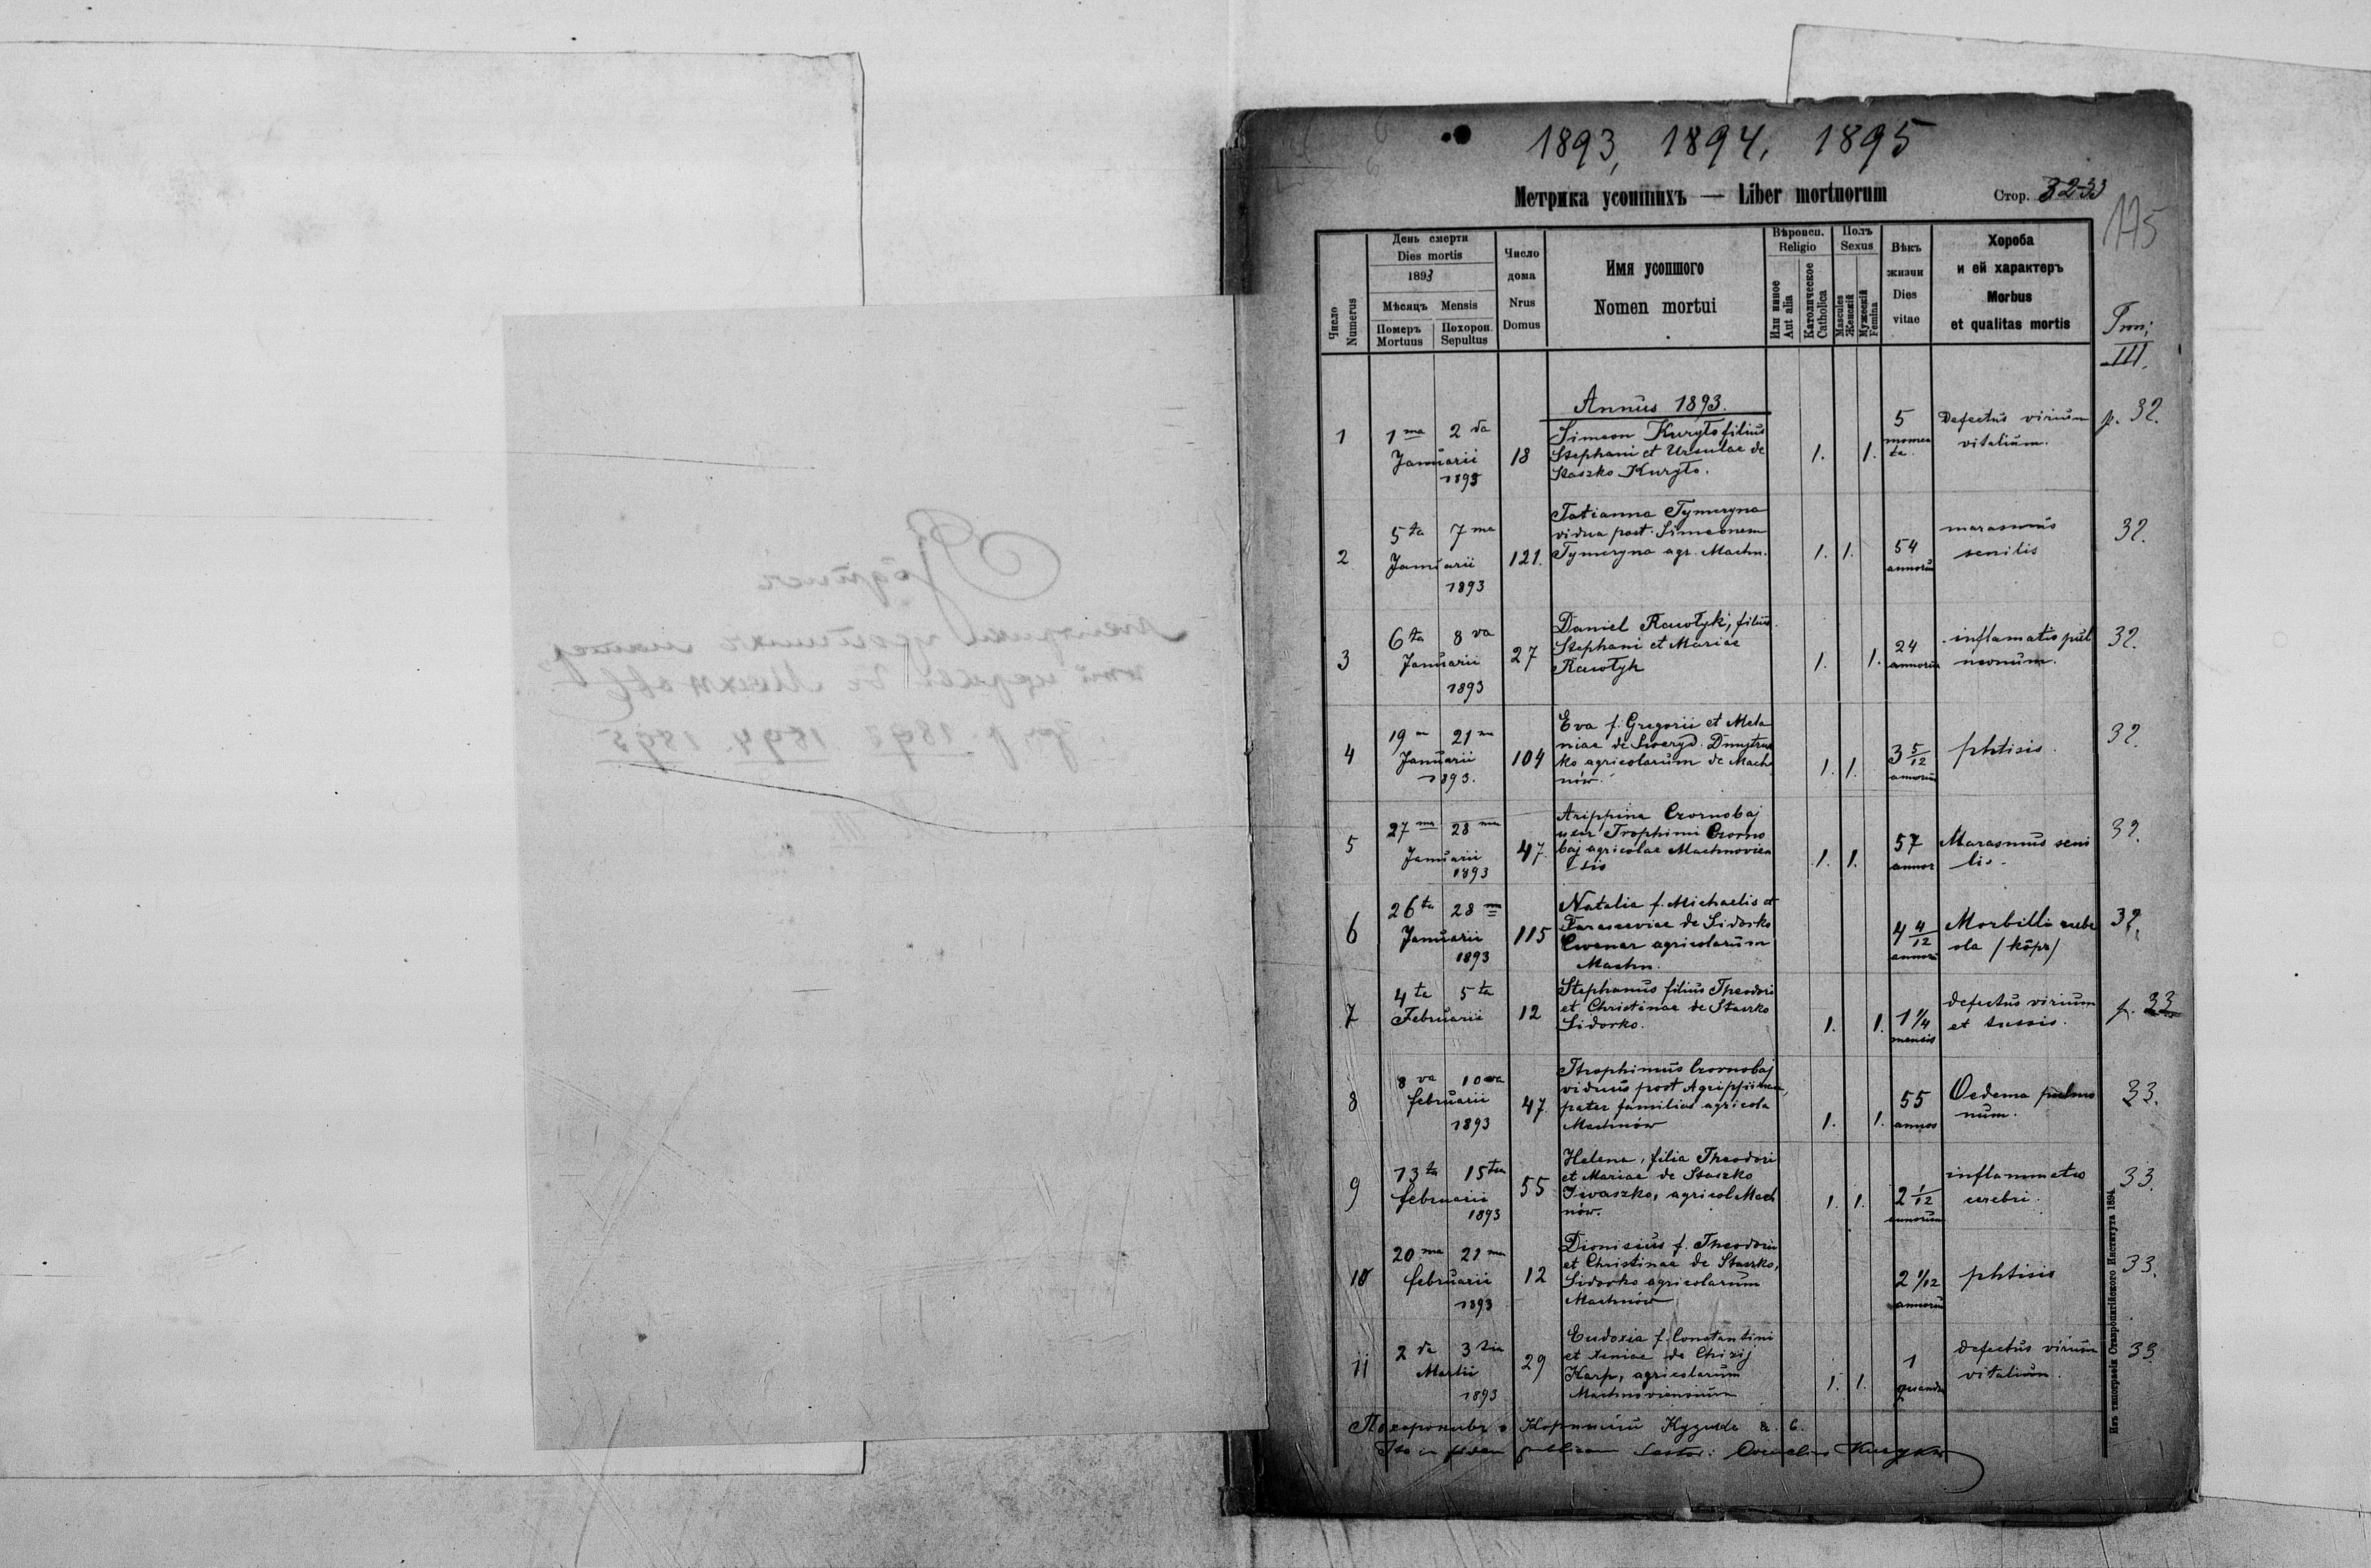 1893, 1894, 1895
Метрика усопшихъ — Liber mortuorum
Стор. 32-33
175
Число
Numerus
День смерти
Dies mortis
1893
Мѣсяцъ Mensis
Померъ
Mortuus
Похорон.
Sepultus
Число
дома
Nrus
Domus
Имя усопшого
Nomen mortui
Вѣроисп.
Religio
Или инное
Aut alia
Католическое
Catholica
Полъ
Sexus
Mascules
Женскій
Мужескій
Femina
Вѣкъ
жизни
Dies
vitae
Хороба
и ей характеръ
Morbus
et qualitas mortis
III.
Annus 1893.
1
1 ma 2 da
Januarii
1893
18
Simeon Kuryło filius
Stephani et Ursulae de
Staszko Kuryło.
1. 1.
5
momen
ta.
Defectus virium
vitalium.
p. 32.
2
5 ta 7 ma
Januarii
1893
121.
Tatianna Tymeryna
vidua post Simeonem
Tymeryna agr. Machn.
1. 1.
54
annorum
marasmus
senilis
32.
3
6 ta 8 va
Januarii
1893
27
Daniel Rawłyk, filius
Stephani et Mariae
Rawłyk
1. 1.
24
annorum
inflamatio pul
monum.
32.
4
19 a 21 a
Januarii
1893.
104
Eva f. Gregorii et Mela
niae de Siweryd. Dmytrus
ko agricolarum de Mach
nów.
1. 1.
3 5/12
annorum
phtisis.
32.
5
27 ma 28 ma
Januarii
1893
47.
Arippina Czornobaj
uxor Trophimi Czorno
baj agricolae Machnovien
sis
1. 1.
57
annor
Marasmus seni
lis.
32.
6
26 ta 28 ma
Januarii
1893
115
Natalia f. Michaelis et
Parasceviae de Sidorko
agricolarum
Machn.
4 4/12
annor
Morbilli rube
ola /kôpr/
32.
7
4 ta 5 ta
Februarii
12
Stephanus filius Theodori
et Christinae de Staszko
Sidorko.
1. 1.
1 1/4
mensis
defectus virium
et tussis.
p. 33
8
8 va 10 va
februarii
1893
47.
Throphimus Czornobaj
viduus post Agrippinam,
pater familias agricola
Machnów
1. 1.
55
annos
Oedema pulmo
num.
33.
9
13 ta 15 ta
februarii
1893
55
Helena, filia Theodori
et Mariae de Staszko
Iwaszko, agricol Mach
nów.
1. 1.
2 1/12
annorum
inflammatio
cerebri.
33.
10
20 ma 21 ma
februarii
1893
12
Dionisius f. Theodori
et Christinae de Staszko,
Sidorko agricolarum
Machnów
2 1/12
annorum
phtisis
33.
11
2 da 3 tia
Martii
1893
29
Eudoxia f. Constantini
et Xeniae de Chizij
Karp, agricolarum
Machnoviensium
1. 1.
1
defectus virium
vitalium.
33
Похоронивъ о Корнилій
publicam
Изъ типографіи Ставропигійского Института 1894.